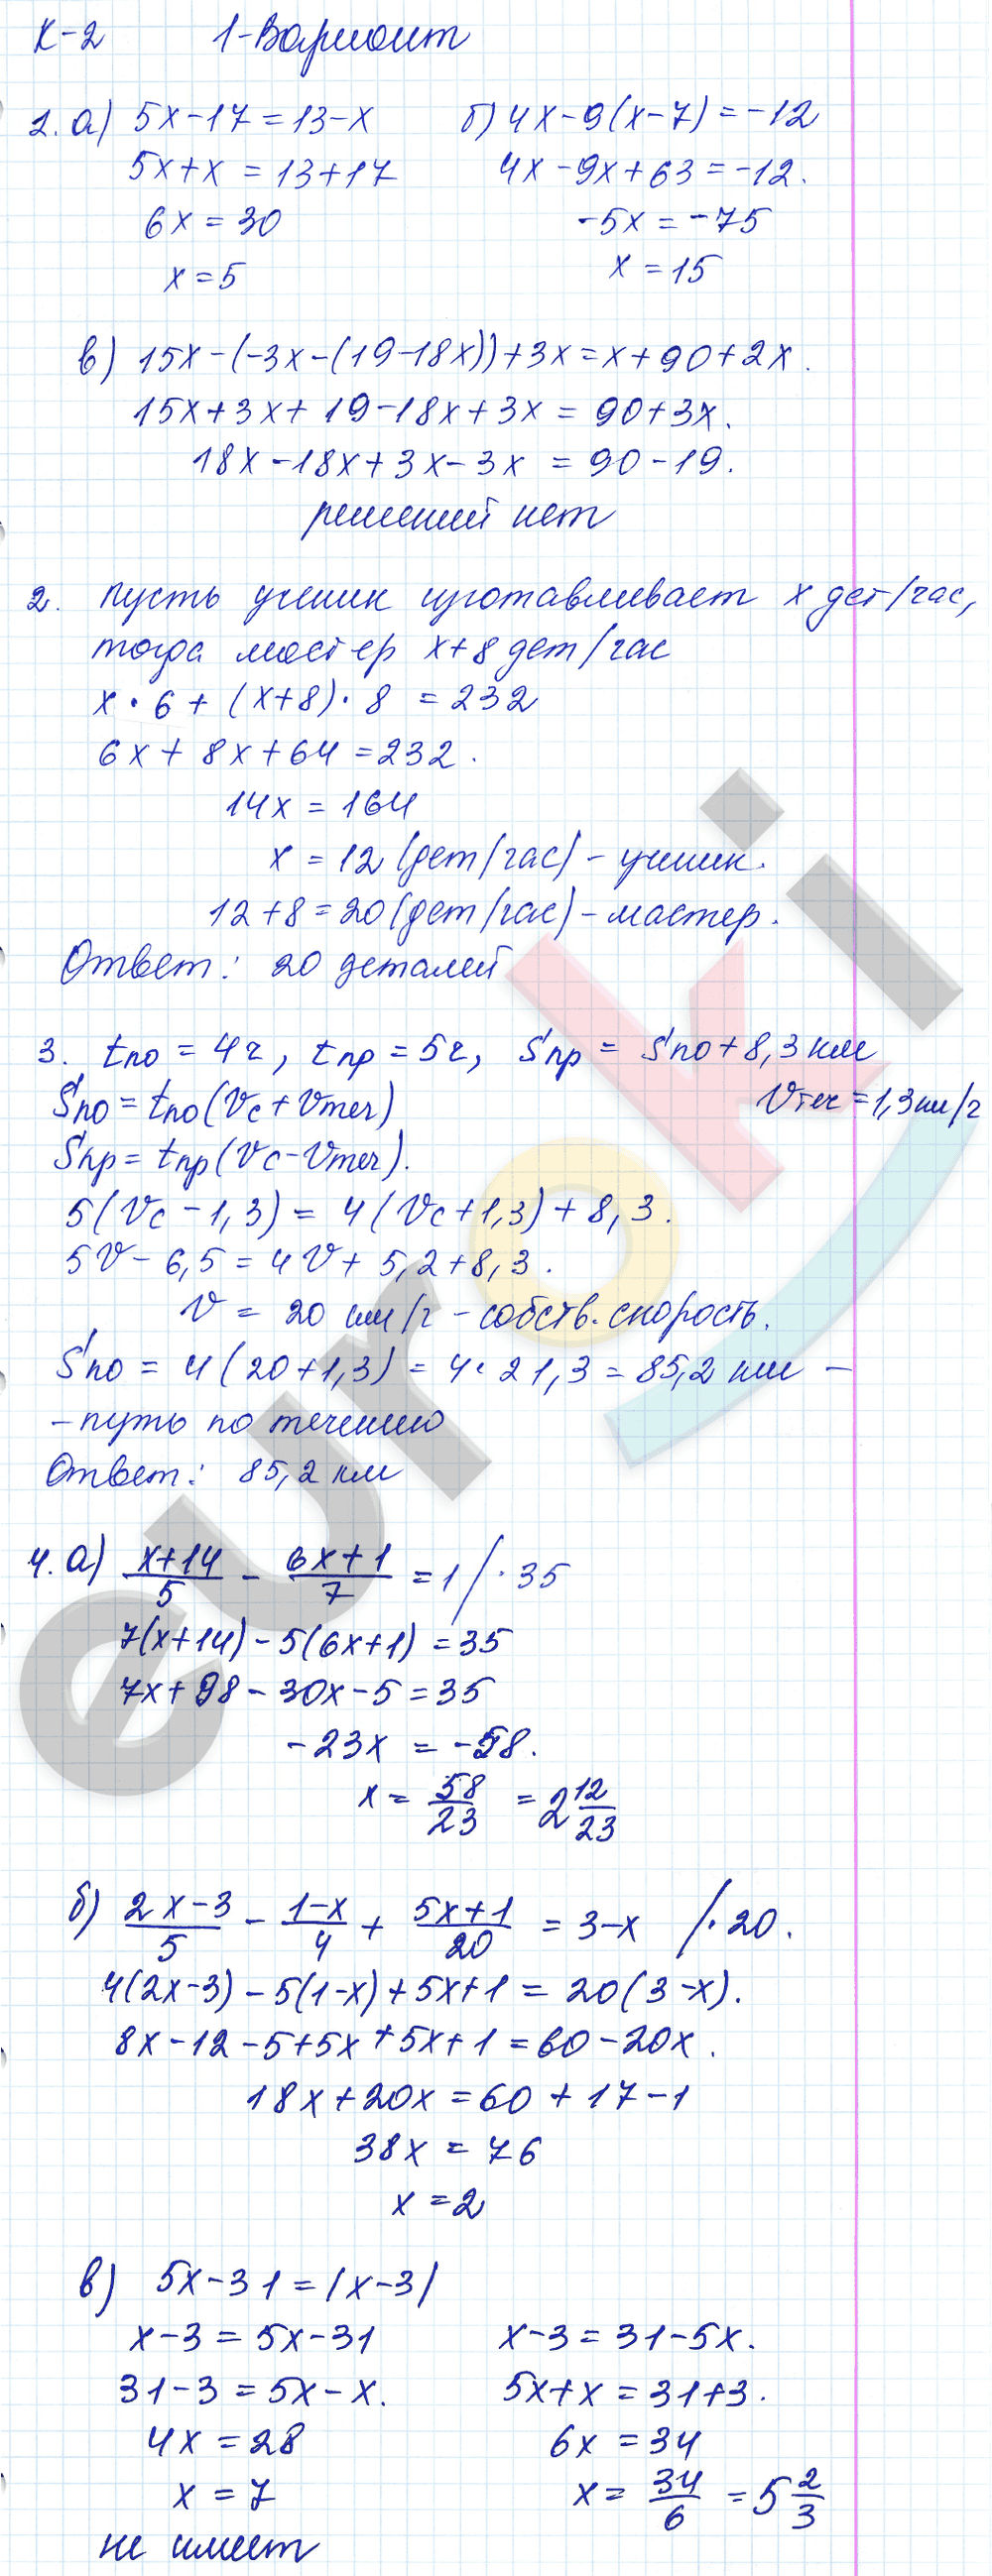 К-2 1-Вариант
1. а) 5x-17=13-x б) 4x-9(x-7)=-12
5x+x=13+17 4x-9x+63=-12.
6x=30 -5x=-75
x=5 x=15
в) 15x-(-3x-(19-18x))+3x=x+90+2x.
15x+3x+19-18x+3x=90+3x.
18x-18x+3x-3x=90-19.
решений нет
2. Пусть ученик изготавливает x дет/час,
тогда мастер x+8 дет/час
x·6+(x+8)·8=232
6x+8x+64=232.
14x=164
x=12(дет/час)-ученик.
12+8=20(дет/час)-мастер.
Ответ: 20 деталей
3. tпо=4ч, tпр=5ч, Sпр=Sпо+8,3км
Sпо=tпо(Vc+Vтеч) Vтеч=1,3км/ч
Sпр=tпр(Vc-Vтеч).
5(Vc-1,3)=4(Vc+1,3)+8,3.
5V-6,5=4V+5,2+8,3.
V=20 км/ч-собств. скорость.
Sпо=4(20+1,3)=4·21,3=85,2 км -
-путь по течению
Ответ: 85,2 км
4. а) (x+14)/5 - (6x+1)/7 =1 /·35
7(x+14)-5(6x+1)=35
7x+98-30x-5=35
-23x=-58.
x=58/23=2 12/23
б) (2x-3)/5 - (1-x)/4 + (5x+1)/20 =3-x /·20.
4(2x-3)-5(1-x)+5x+1=20(3-x).
8x-12-5+5x+5x+1=60-20x.
18x+20x=60+17-1
38x=76
x=2
в) 5x-31=|x-3|
x-3=5x-31 x-3=31-5x.
31-3=5x-x. 5x+x=31+3.
4x=28 6x=34
x=7 x=34/6=5 2/3
не имеет
euroki